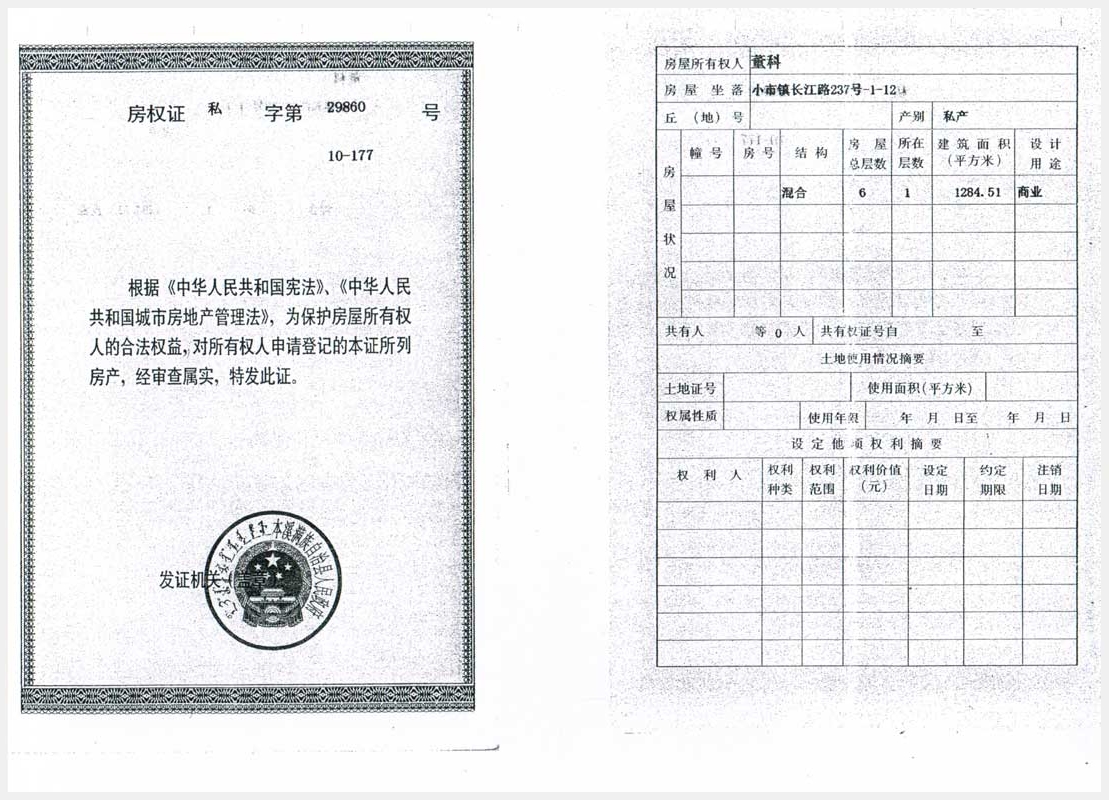 房权证 私 字第 29860 号
10-177
根据《中华人民共和国宪法》、《中华人民
共和国城市房地产管理法》，为保护房屋所有权
人的合法权益，对所有权人申请登记的本证所列
房产，经审查属实，特发此证。
发证机关（盖章）
本溪满族自治县人民政府
房屋所有权人 董科
房屋坐落 小市镇长江路237号-1-12
丘（地）号 产别 私产
房屋状况
幢号 房号 结构 房屋总层数 所在层数 建筑面积（平方米） 设计用途
混合 6 1 1284.51 商业
共有人 等 0 人 共有权证号自 至
土地使用情况摘要
土地证号 使用面积(平方米)
权属性质 使用年限 年 月 日至 年 月 日
设定他项权利摘要
权利人 权利种类 权利范围 权利价值（元） 设定日期 约定期限 注销日期